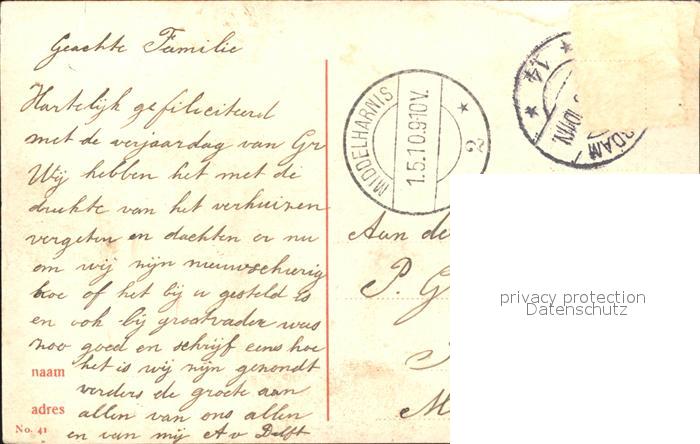 Geachte Familie
Hartelijk gefiliciteerd
met de verjaardag van Gr
Wij hebben het met de
drukte van het verhuizen
vergeten en dachten er nu
om wij zijn nieuwschierig
hoe of het bij u gesteld is
en ook bij grootvader was
zoo goed en schrijf eens hoe
het is wij zijn gezondt
verders de groete aan
allen van ons allen
en van mij A v Delft
naam
adres
No. 41
MIDDELHARNIS
1.5.10.9-10V.
2
14
DAM
Aan de
P. G
M
privacy protection
Datenschutz